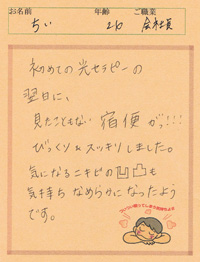 お名前 年齢 ご職業
ちい 26 会社員
初めての光セラピーの
翌日に、
見たこともない宿便がっ!!!
びっくり&スッキリしました。
気になるニキビの凹凸も
気持ちなめらかになったよう
です。